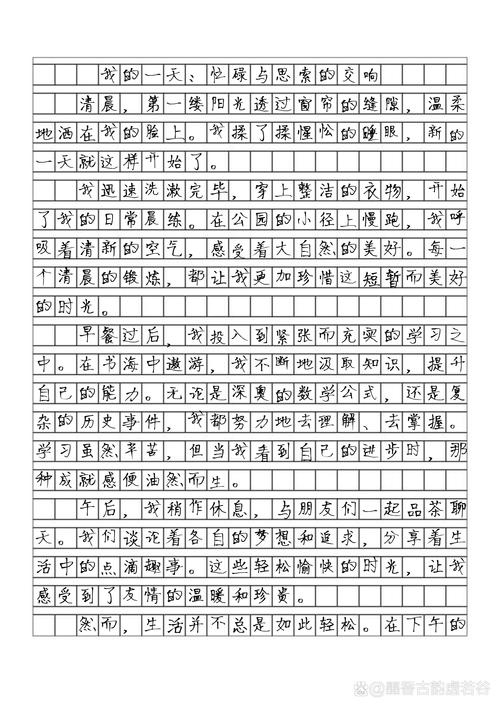 我的一天：忙碌与思索的交响
清晨，第一缕阳光透过窗帘的缝隙，温柔
地洒在我的脸上。我揉了揉惺忪的睡眼，新的
一天就这样开始了。
我迅速洗漱完毕，穿上整洁的衣物，开始
了我的日常晨练。在公园的小径上慢跑，我呼
吸着清新的空气，感受着大自然的美好。每一
个清晨的锻炼，都让我更加珍惜这短暂而美好
的时光。
早餐过后，我投入到紧张而充实的学习之
中。在书海中遨游，我不断地汲取知识，提升
自己的能力。无论是深奥的数学公式，还是复
杂的历史事件，我都努力地去理解、去掌握。
学习虽然辛苦，但当我看到自己的进步时，那
种成就感便油然而生。
午后，我稍作休息，与朋友们一起品茶聊
天。我们谈论着各自的梦想和追求，分享着生
活中的点滴趣事。这些轻松愉快的时光，让我
感受到了友情的温暖和珍贵。
然而，生活并不总是如此轻松。在下午的